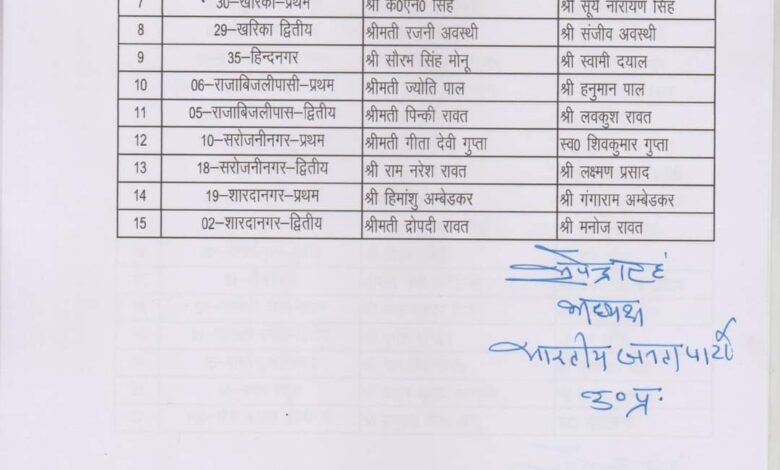 7 30–खारिका–प्रथम श्री के०एन० सिंह श्री सूर्य नारायण सिंह
8 29–खरिका द्वितीय श्रीमती रजनी अवस्थी श्री संजीव अवस्थी
9 35–हिन्दनगर श्री सौरभ सिंह मोनू श्री स्वामी दयाल
10 06–राजाबिजलीपासी–प्रथम श्रीमती ज्योति पाल श्री हनुमान पाल
11 05–राजाबिजलीपास–द्वितीय श्रीमती पिन्की रावत श्री लवकुश रावत
12 10–सरोजनीनगर–प्रथम श्रीमती गीता देवी गुप्ता स्व० शिवकुमार गुप्ता
13 18–सरोजनीनगर–द्वितीय श्री राम नरेश रावत श्री लक्ष्मण प्रसाद
14 19–शारदानगर–प्रथम श्री हिमांशु अम्बेडकर श्री गंगाराम अम्बेडकर
15 02–शारदानगर–द्वितीय श्रीमती द्रोपदी रावत श्री मनोज रावत
अध्यक्ष
भारतीय जनता पार्टी
उ० प्र०